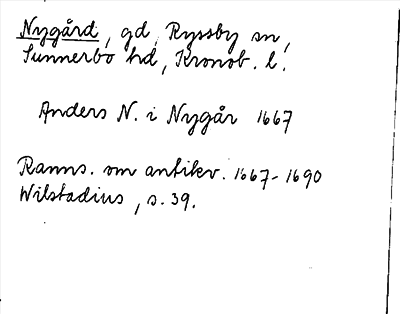 Nygård, gd, Ryssby sn,
Sunnerbo hd, Kronob. l.
Anders N. i Nygår 1667
Ranns. om antikv. 1667-1690
Wilstadius, s. 39.